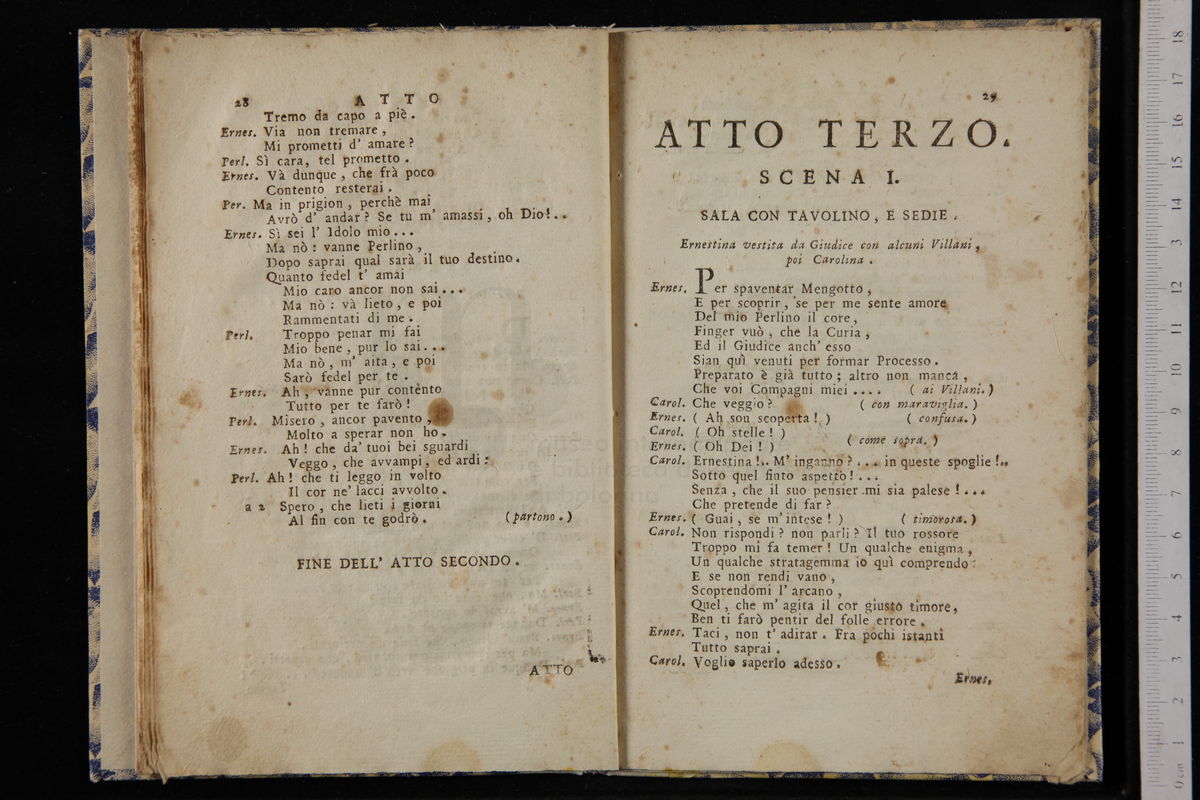 28 ATTO
Tremo da capo a piè.
Ernes. Via non tremare,
Mi prometti d' amare?
Perl. Sì cara, tel prometto.
Ernes. Và dunque, che frà poco
Contento resterai.
Per. Ma in prigion, perchè mai
Avrò d' andar? Se tu m' amassi, oh Dio!..
Ernes. Sì sei l' Idolo mio...
Ma nò: vanne Perlino,
Dopo saprai qual sarà il tuo destino.
Quanto fedel t' amai
Mio caro ancor non sai...
Ma nò: và lieto, e poi
Rammentati di me.
Perl. Troppo penar mi fai
Mio bene, pur lo sai...
Ma nò, m' aita, e poi
Sarò fedel per te.
Ernes. Ah, vanne pur contento
Tutto per te farò!
Perl. Misero, ancor pavento,
Molto a sperar non ho.
Ernes. Ah! che da' tuoi bei sguardi
Veggo, che avvampi, ed ardi:
Perl. Ah! che ti leggo in volto
Il cor ne' lacci avvolto.
a 2 Spero, che lieti i giorni
Al fin con te godrò. (partono.)
FINE DELL' ATTO SECONDO.
ATTO
29
ATTO TERZO.
SCENA I.
SALA CON TAVOLINO, E SEDIE.
Ernestina vestita da Giudice con alcuni Villani,
poi Carolina.
Ernes. Per spaventar Mengotto,
E per scoprir, se per me sente amore
Del mio Perlino il core,
Finger vuò, che la Curia,
Ed il Giudice anch' esso
Sian quì venuti per formar Processo.
Preparato è già tutto; altro non manca,
Che voi Compagni miei.... (ai Villani.)
Carol. Che veggio? (con maraviglia.)
Ernes. (Ah son scoperta!) (confusa.)
Carol. (Oh stelle!)
Ernes. (Oh Dei!) (come sopra.)
Carol. Ernestina!.. M' inganno?... in queste spoglie!..
Sotto quel finto aspetto!...
Senza, che il suo pensier mi sia palese!...
Che pretende di far?
Ernes. (Guai, se m' intese!) (timorosa.)
Carol. Non rispondi? non parli? Il tuo rossore
Troppo mi fa temer! Un qualche enigma,
Un qualche stratagemma io quì comprendo
E se non rendi vano,
Scoprendomi l' arcano,
Quel, che m' agita il cor giusto timore,
Ben ti farò pentir del folle errore.
Ernes. Taci, non t' adirar. Fra pochi istanti
Tutto saprai.
Carol. Voglio saperlo adesso.
Ernes.